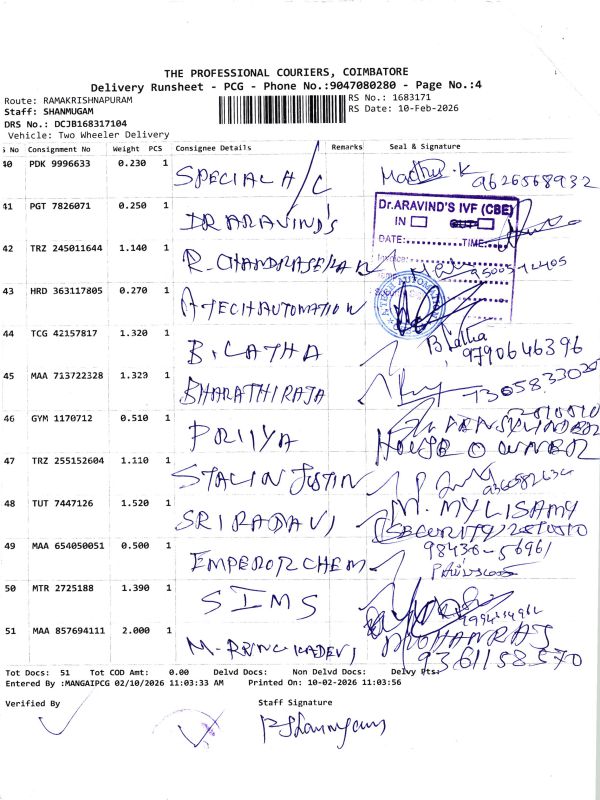 THE PROFESSIONAL COURIERS, COIMBATORE
Delivery Runsheet - PCG - Phone No.:9047080280 - Page No.:4
Route: RAMAKRISHNAPURAM
RS No.: 1683171
Staff: SHANMUGAM
RS Date: 10-Feb-2026
DRS No.: DCJB168317104
Vehicle: Two Wheeler Delivery
S No Consignment No Weight PCS Consignee Details Remarks Seal & Signature
40 PDK 9996633 0.230 1 SPECIAL A/C Madhu.K 9626568932
41 PGT 7826071 0.250 1 DR ARAVIND'S
Dr.ARAVIND'S IVF (CBE)
IN OUT
DATE: TIME:
42 TRZ 245011644 1.140 1 R.CHANDRASEKAR
43 HRD 363117805 0.270 1 ATECHAUTOMATION
44 TCG 42157817 1.320 1 B.LATHA B latha 9790646396
45 MAA 713722328 1.323 1 BHARATHIRAJA
46 GYM 1170712 0.510 1 PRIIYA HOUSE OWNER
47 TRZ 255152604 1.110 1 STALIN JUSTIN
48 TUT 7447126 1.520 1 SRIRADAVI M. MYLISAMY
(SECURITY)
49 MAA 654050051 0.500 1 EMPEROR CHEM 98430-56961
50 MTR 2725188 1.390 1 SIMS
51 MAA 857694111 2.000 1 MOHANRAJ
9361158570
Tot Docs: 51 Tot COD Amt: 0.00 Delvd Docs: Non Delvd Docs: Delvy Pts:
Entered By :MANGAIPCG 02/10/2026 11:03:33 AM Printed On: 10-02-2026 11:03:56
Verified By Staff Signature
P Shanmugam